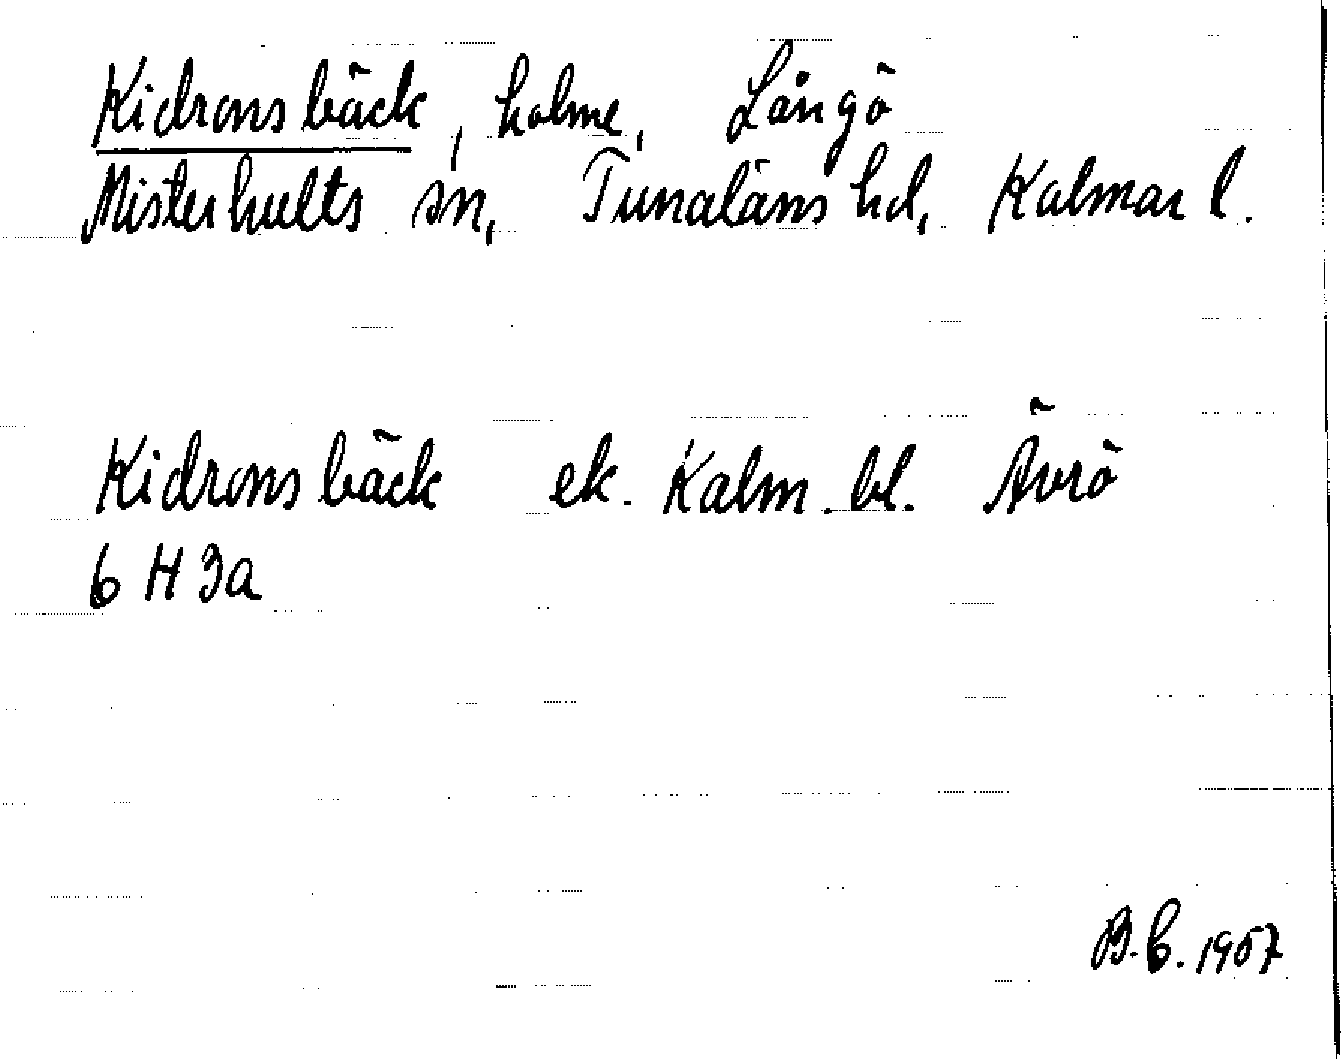 Kidronsbäck, holme, Långö
Misterhults sn, Tunaläns hd, Kalmar l.
Kidronsbäck ek. Kalm. bl. Ävrö
6 H 3a
B.E. 1957